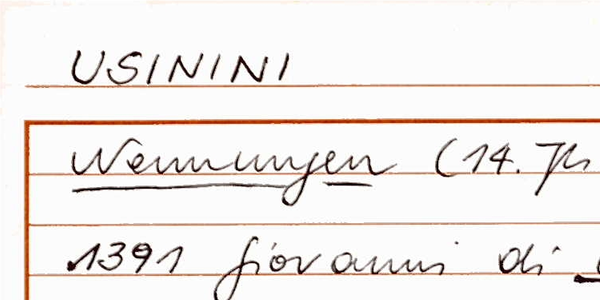 USININI
Nennungen (14. Jh
1391 Giovanni di